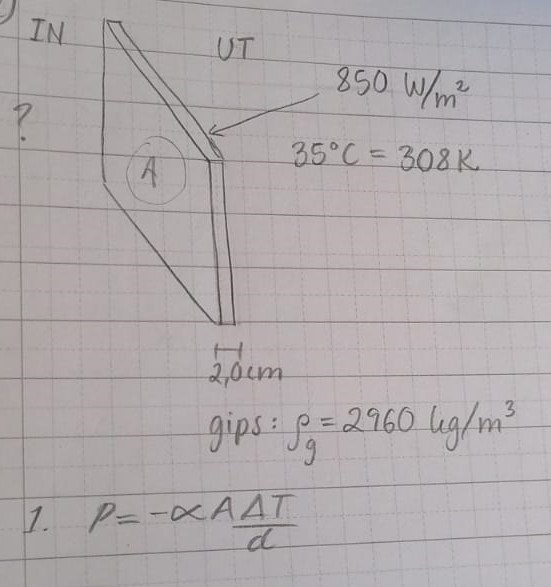 IN
UT
850 W/m²
?
35°C = 308K
A
2,0cm
gips: ρg = 2960 kg/m³
1. P = -αA ΔT/d